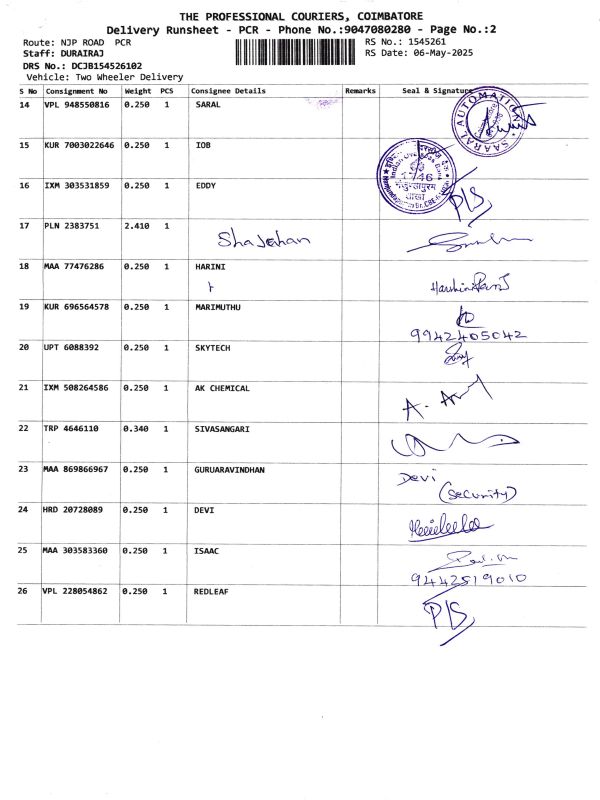 THE PROFESSIONAL COURIERS, COIMBATORE
Delivery Runsheet - PCR - Phone No.:9047080280 - Page No.:2
Route: NJP ROAD PCR RS No.: 1545261
Staff: DURAIRAJ RS Date: 06-May-2025
DRS No.: DCJB154526102
Vehicle: Two Wheeler Delivery
S No Consignment No Weight PCS Consignee Details Remarks Seal & Signature
14 VPL 948550816 0.250 1 SARAL
SARAL AUTOMATION
15 KUR 7003022646 0.250 1 IOB
Indian Overseas Bank
1746
16 IXM 303531859 0.250 1 EDDY
17 PLN 2383751 2.410 1 Shajahan
18 MAA 77476286 0.250 1 HARINI
19 KUR 696564578 0.250 1 MARIMUTHU
9942405042
20 UPT 6088392 0.250 1 SKYTECH
21 IXM 508264586 0.250 1 AK CHEMICAL
22 TRP 4646110 0.340 1 SIVASANGARI
23 MAA 869866967 0.250 1 GURUARAVINDHAN Devi
(Security)
24 HRD 20728089 0.250 1 DEVI
25 MAA 303583360 0.250 1 ISAAC
9442519010
26 VPL 228054862 0.250 1 REDLEAF